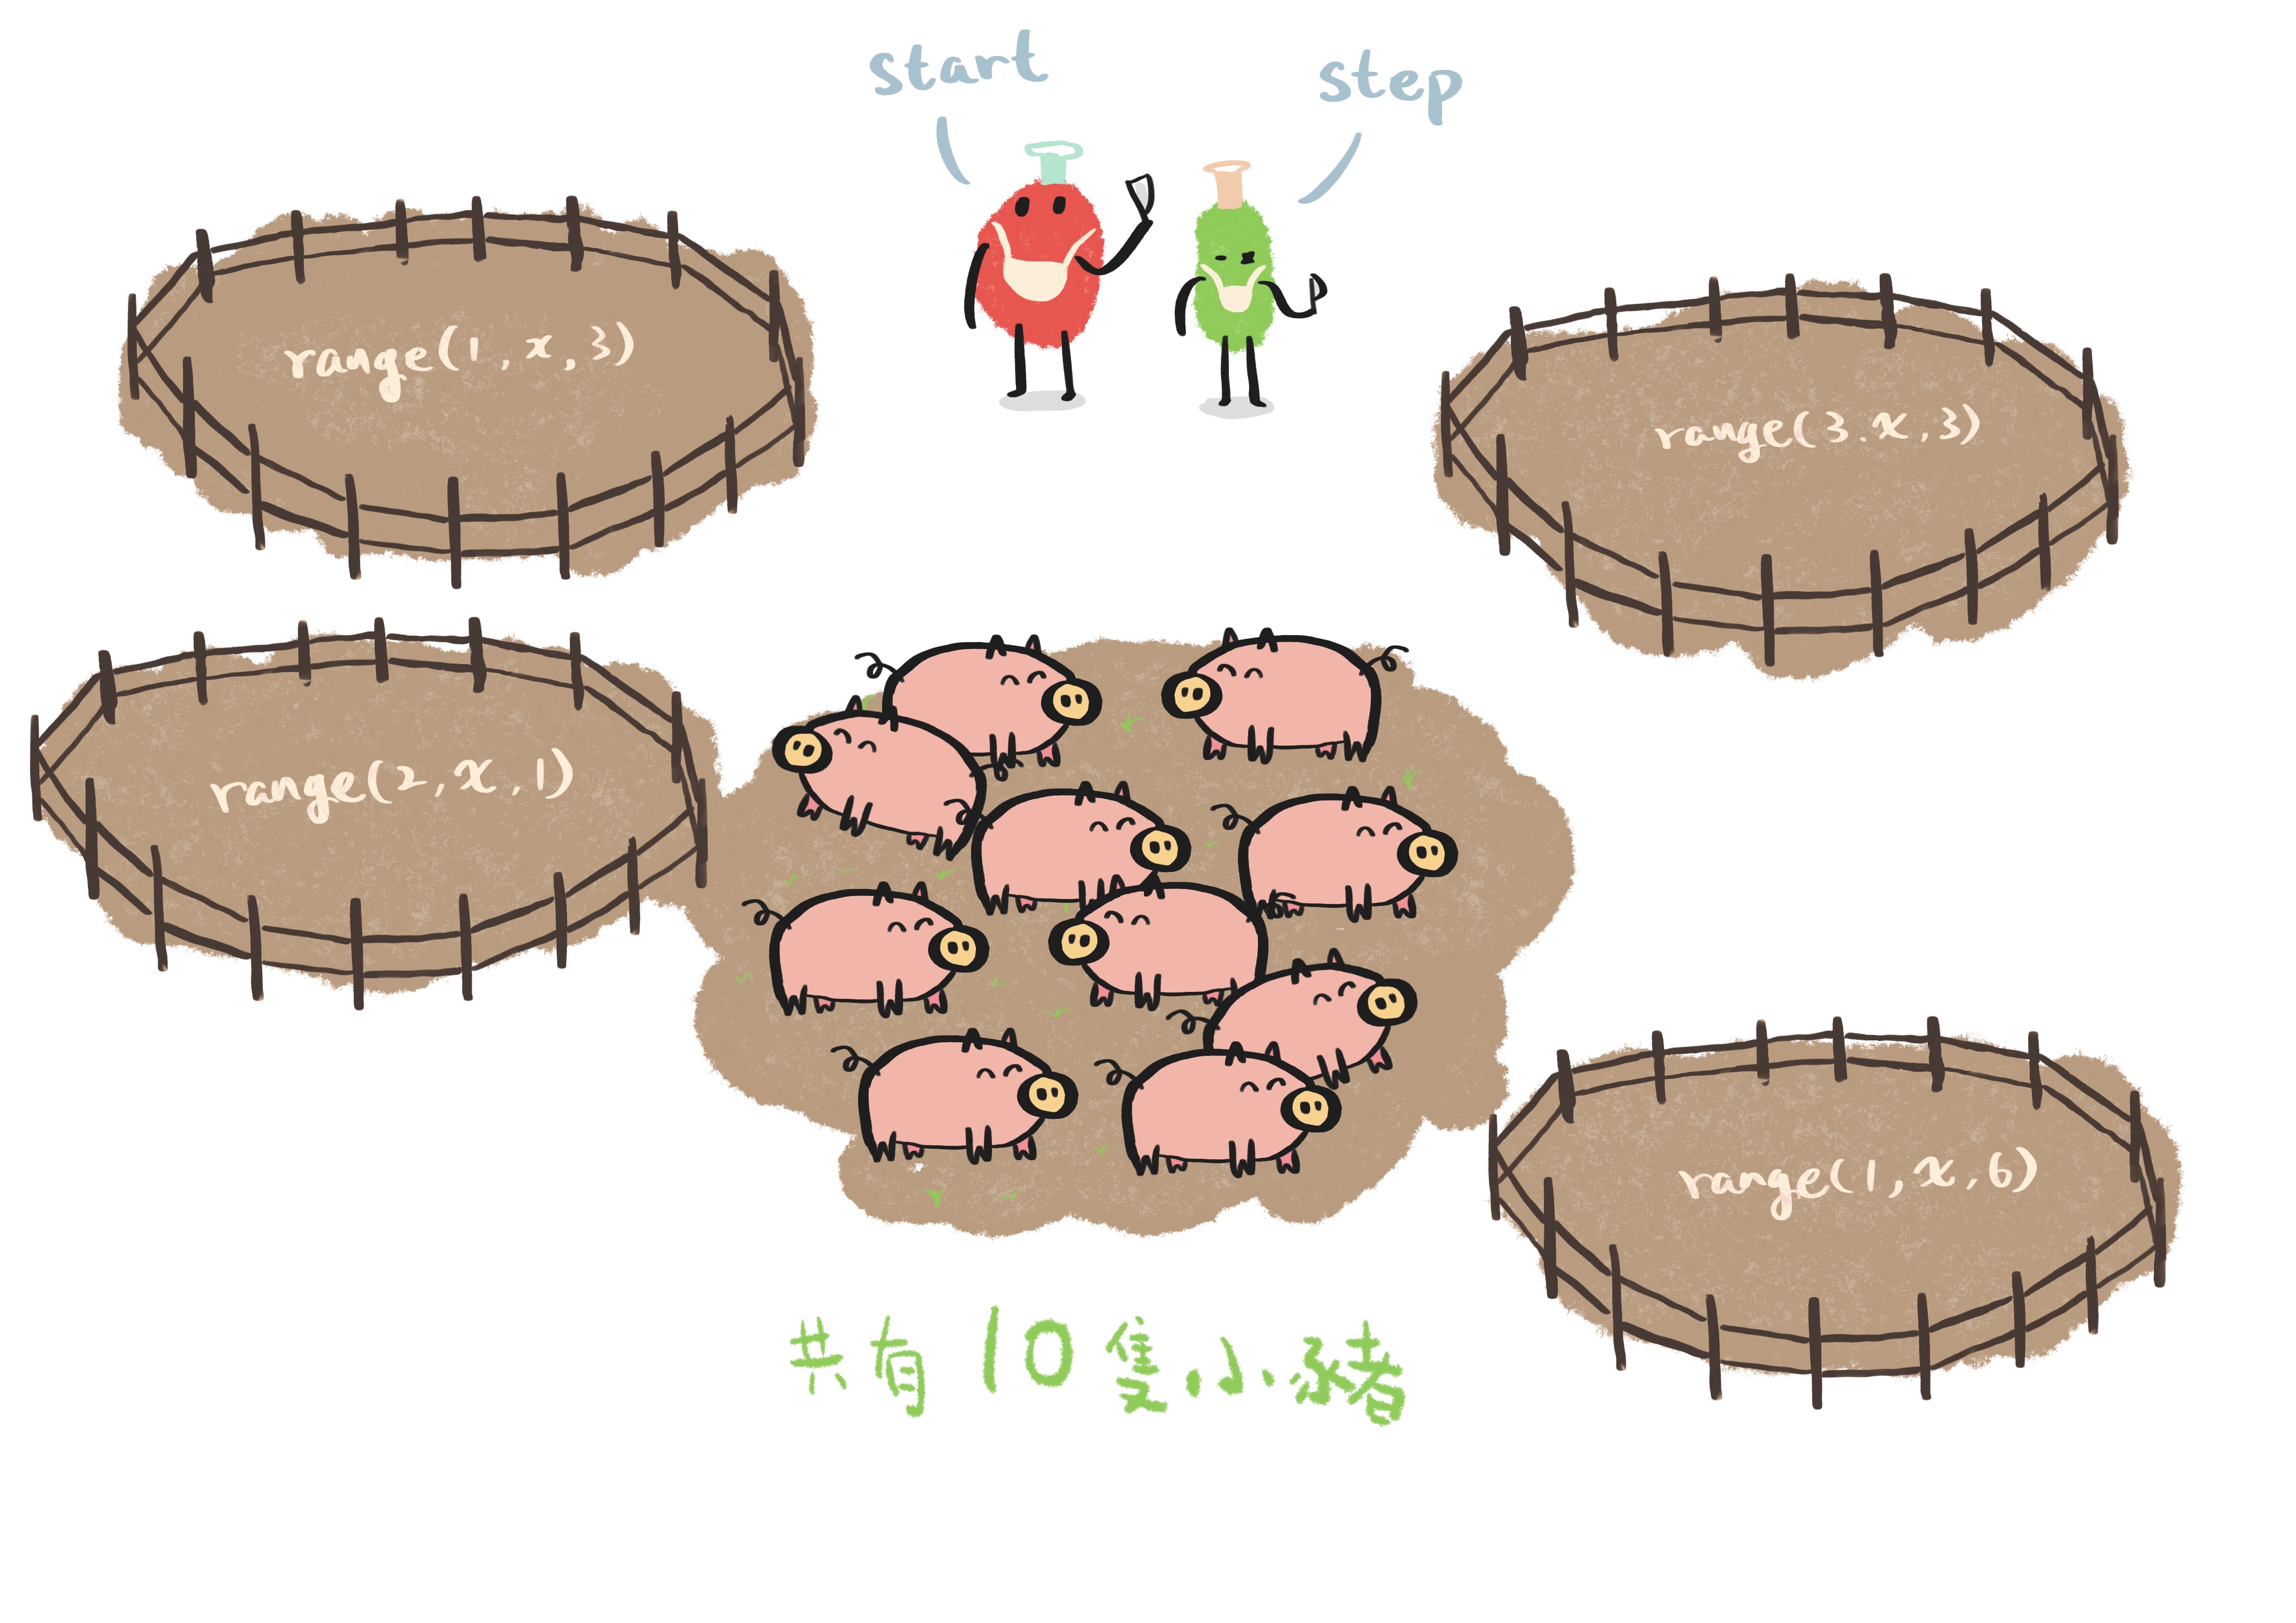 start
step
range(1, x, 3)
range(3.x,3)
range(2, x, 1)
range(1, x, 6)
共有10隻小豬